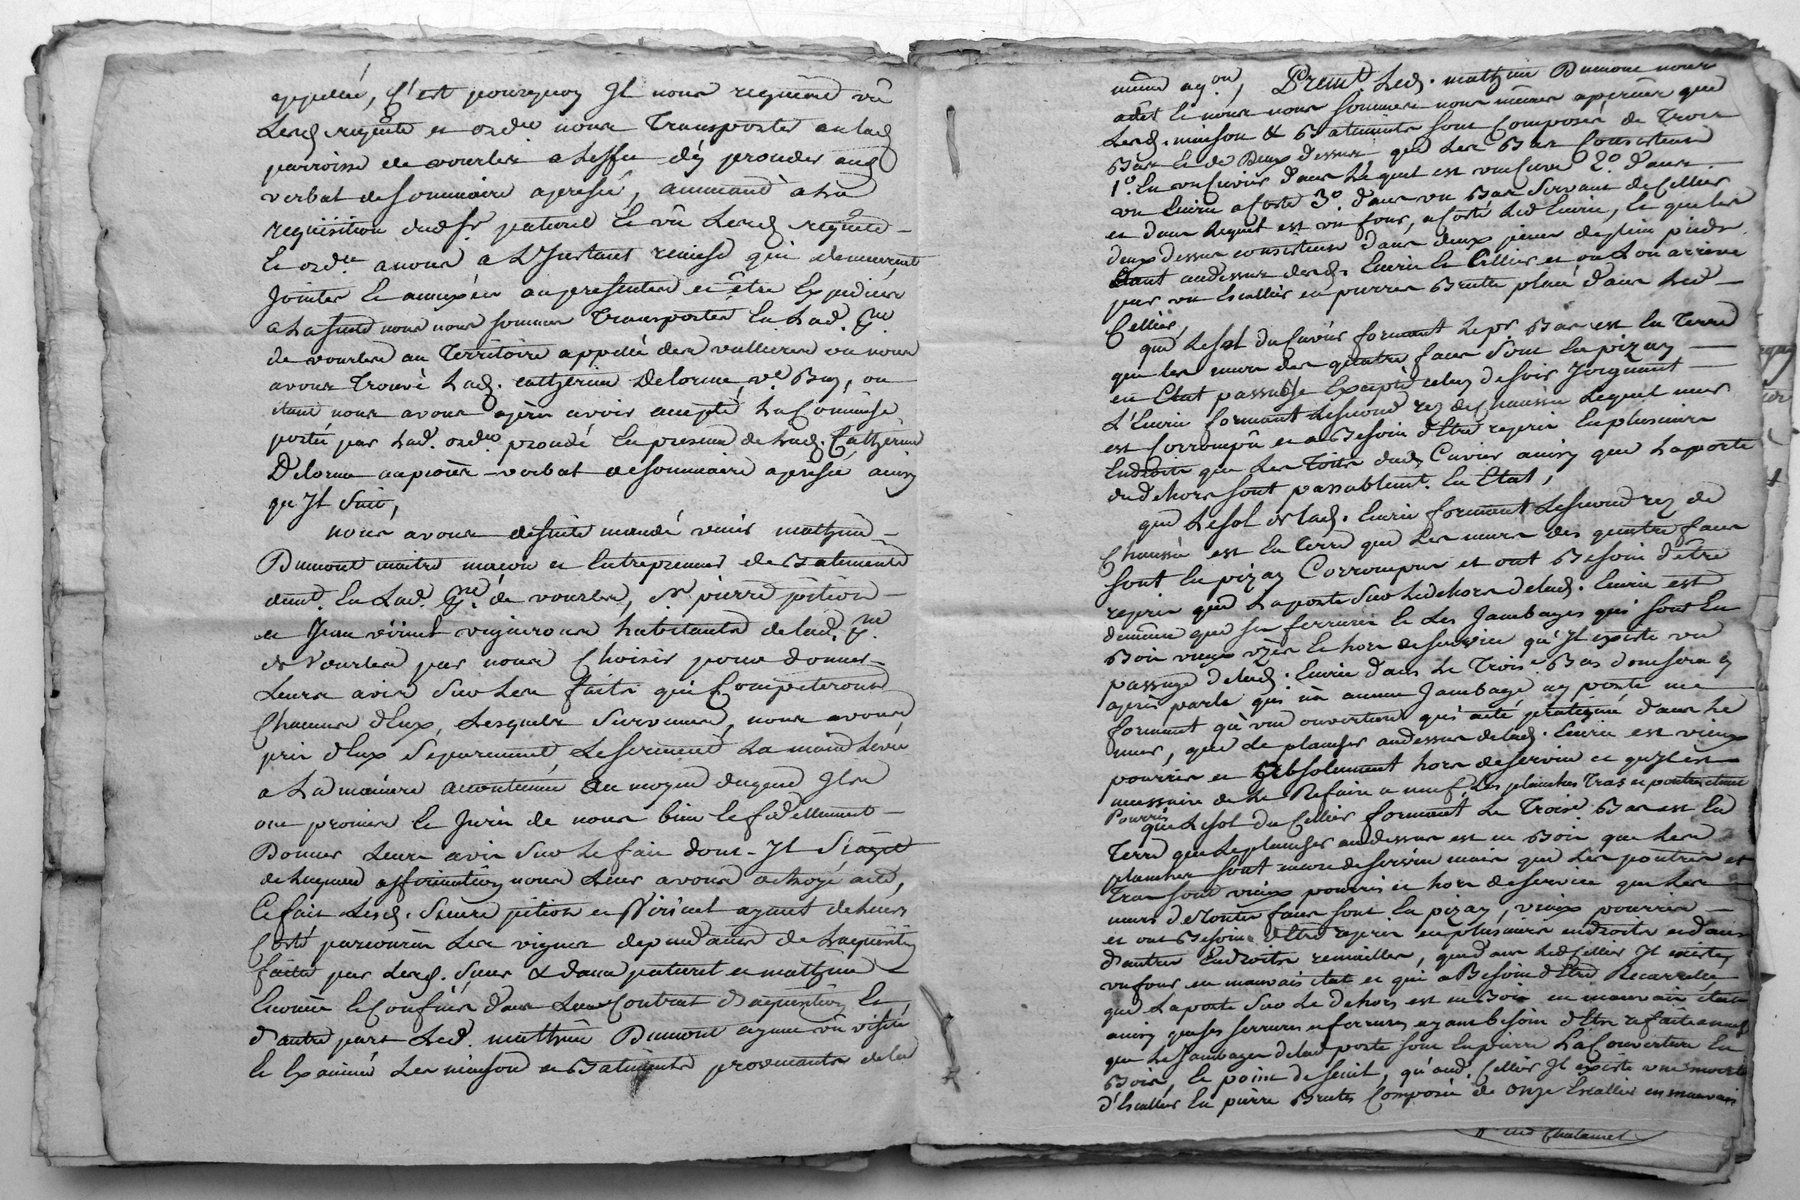 appellée, C'est pourquoy Il nous requiére vû
Lesd. requête et ordce nous Transporter en lad.
parroisse de vourles a Leffet d'y proceder aud.
verbal de sommaire aprisie, a
requisition dud. sr paturel Et vû Lesd. requête
Et ordce a nous a L'Instant remise qui demeureront
Jointes Et annexées au presentes et être Expediées
a La suite nous nous sommes Transportés En Lad. pse
de vourles au Territoire appellé des vallieres ou nous
avons Trouvé Lad. catherine Delorme ve Buy, ou
étant nous avons après avoir accepté La Comission
portée par Lad. ordce procédé En presence de Lad. Catherine
Delorme au procès-verbal de sommaire aprisie ainsy
qu'Il Suit,
nous avons de suite mandé venir mathieu
Dumont maitre maçon et Entrepreneur de Batiments
demt. En Lad. pse de vourles, sr pierre pition
et Jean virieut vignerons habitants de lad. pse
de Vourles par nous Choisis pour donner
Leurs avis Sur Les faits qui Competeront
Chacun d'Eux, Lesquels Survenus, nous avons
pris d'Eux Separement, Le serment La main Levée
a La maniere accoutumée Au moyen duquel Ils
ont promis Et Juré de nous bien Et fidellement
Donner Leurs avis Sur Le fait dont Il S'agit
de Laquelle affirmation nous Leur avons octroyé acte,
Ce fait Lesd. Sieurs pition et Virieut ayant de Leurs
Coté parcourus Les vignes dependantes de L'aquisition
faite par Lesd. Sieur & dame paturel et mathieu
Enoncé Et Confinés dans Leur Contrat d'aquisition Et
d'autre part Led. mathieu Dumont ayant vû visité
Et Examiné Les maison et Batiments provenants de lad.
même aqon, Premt. Led. mathieu Dumont nous
atteste nous nous Sommes nous mêmes aperçus que
Lesd. maison & Batiments Sont Composés de Trois
Bas Et de Deux dessus, que Les Bas Consistent
1o. En un Cuvier dans Lequel est une Cuve 2o. dans
un Ecurie a Coté 3o. dans un Bas Servant de Cellier
et dans Lequel est un four, a Coté Led. Ecurie, Et que les
deux dessus consistent dans deux pieces de plein pieds
étant audessus desd. Ecurie Et Cellier et ou L'on arrive
par un Escallier en pierres Brutes placé dans Led.
Cellier,
que Le sol du Cuvier formant Le pr. Bas est En Terre
que Les murs des quatre faces Sont En pizay
en Etat passable Excepté celuy de soir Joignant
L'Ecurie formant Le second rez de Chaussée Lequel mur
est Corrompû et a Besoin d'être repris En plusieurs
Endroits que Les Toits dud. Cuvier ainsy que La porte
du dehors Sont passablemt. En Etat,
que Le sol de lad. Ecurie formant Le second rez de
Chaussée est En Terre que Les murs des quatre faces
Sont En pizay Corrompus et ont Besoin d'être
repris que La porte Sur Le dehors de lad. Ecurie est
de même que Sa ferrure Et Les Jambages qui Sont En
Bois vieux uzés Et hors de service qu'Il existe un
passage de lad. Ecurie dans Le Troise. Bas dont Sera cy
après parlé qui n'a aucun Jambage ny porte ne
formant qu'une ouverture qui a été pratiquée dans Le
mur, que Le plancher audessus de lad. Ecurie est vieux
pourris et Absolument hors de service et qu'Il est
necessaire de Le Refaire a neuf, Les planches Tras et poutres étant
Pourris
que Le sol du Cellier formant Le Troise. Bas est En
Terre que Le plancher audessus est en Bois que Les
planches Sont encore de service mais que Les poutres et
Tras Sont vieux pourris et hors de service que Les
murs de Toutes faces Sont En pizay, vieux pourris
et ont Besoin d'être repris en plusieurs endroits et dans
d'autres Endroits remailler, que dans Led. Cellier Il existe
un four en mauvais état et qui a Besoin d'être Recarrelée
que La porte Sur Le dehors est en Bois en mauvais état
ainsy que ses serrures et ferrures ayant besoin d'être refaite a neuf
que Les Jambages de lad. porte Sont En pierre La Couverture En
Bois, Et point de seuil, qu'aud. Cellier Il existe une montée
d'Escallier En pierre Brutes Composée de onze Escallier en mauvais